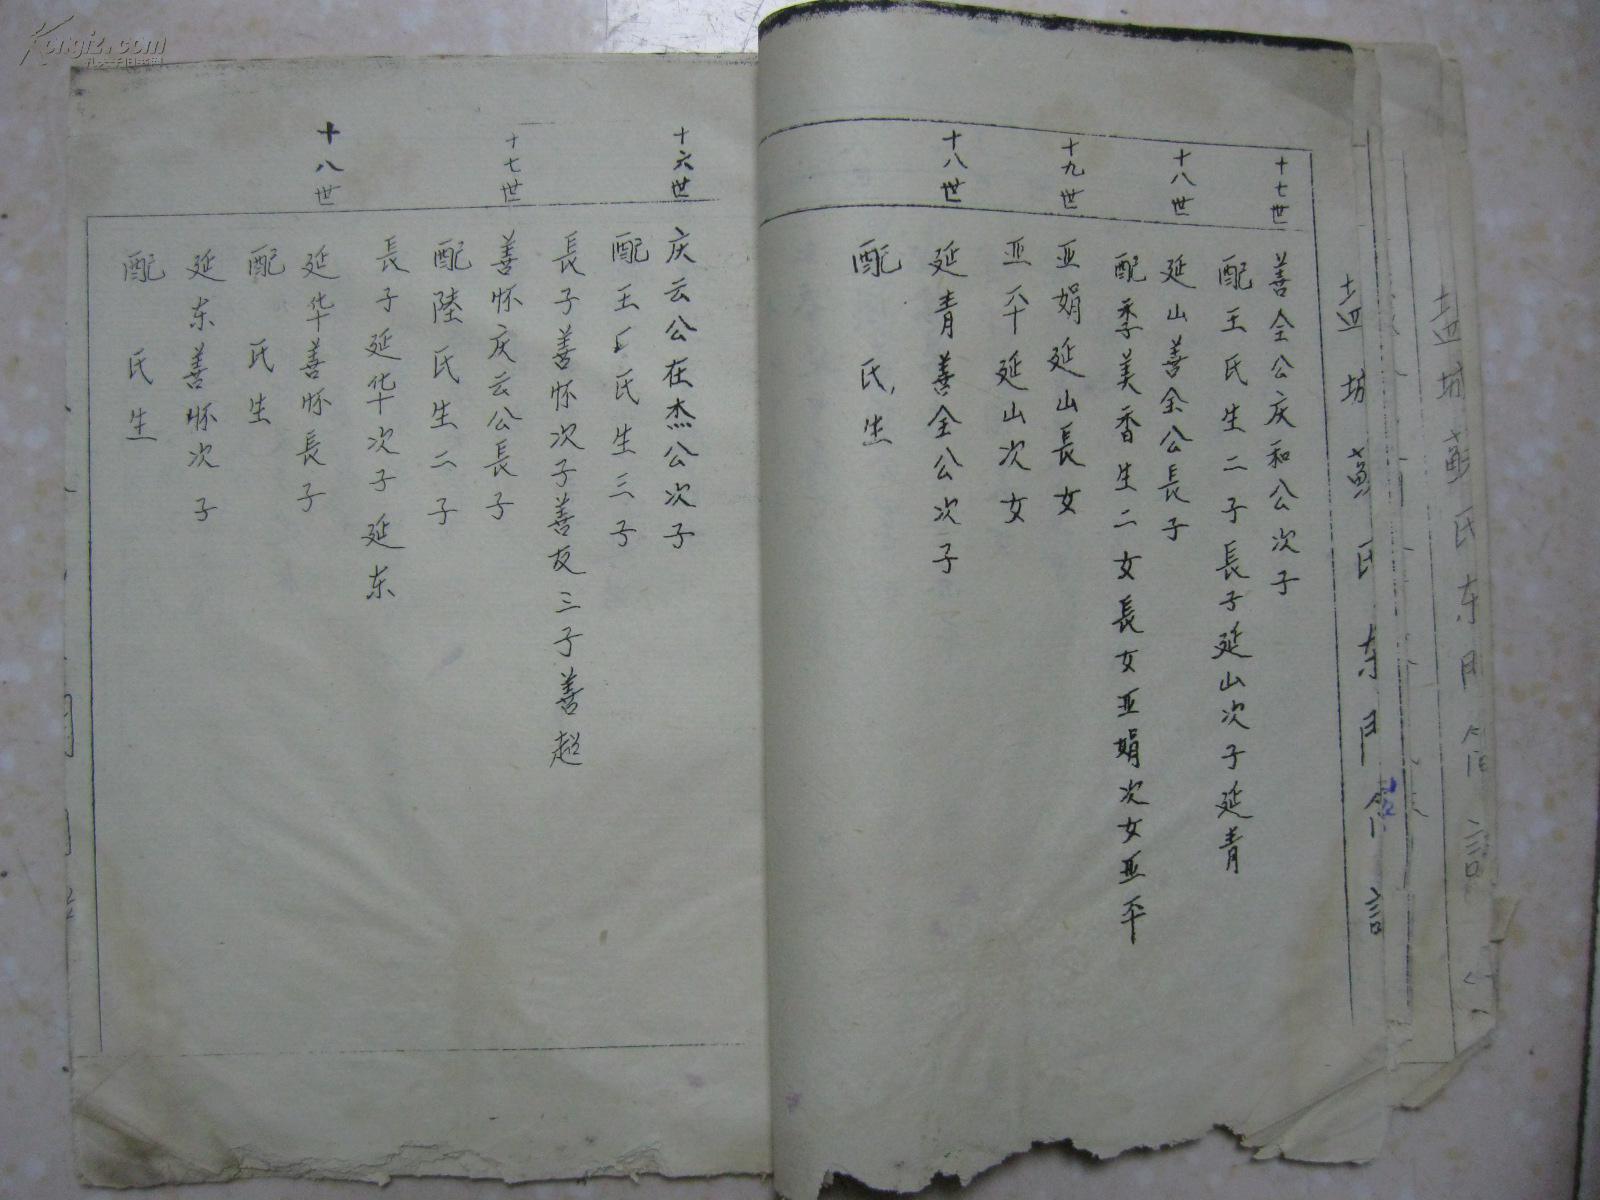 十七世
善全公庆和公次子
配王氏生二子長子延山次子延青
十八世
延山善全公長子
配季美香生二女長女亚娟次女亚平
十九世
亚娟延山長女
亚平延山次女
十八世
延青善全公次子
配 氏生
十六世
庆云公在杰公次子
配王氏生三子
長子善怀次子善友三子善超
十七世
善怀庆云公長子
配陸氏生二子
長子延华次子延东
十八世
延华善怀長子
配 氏生
延东善怀次子
配 氏生
Kongfz.com